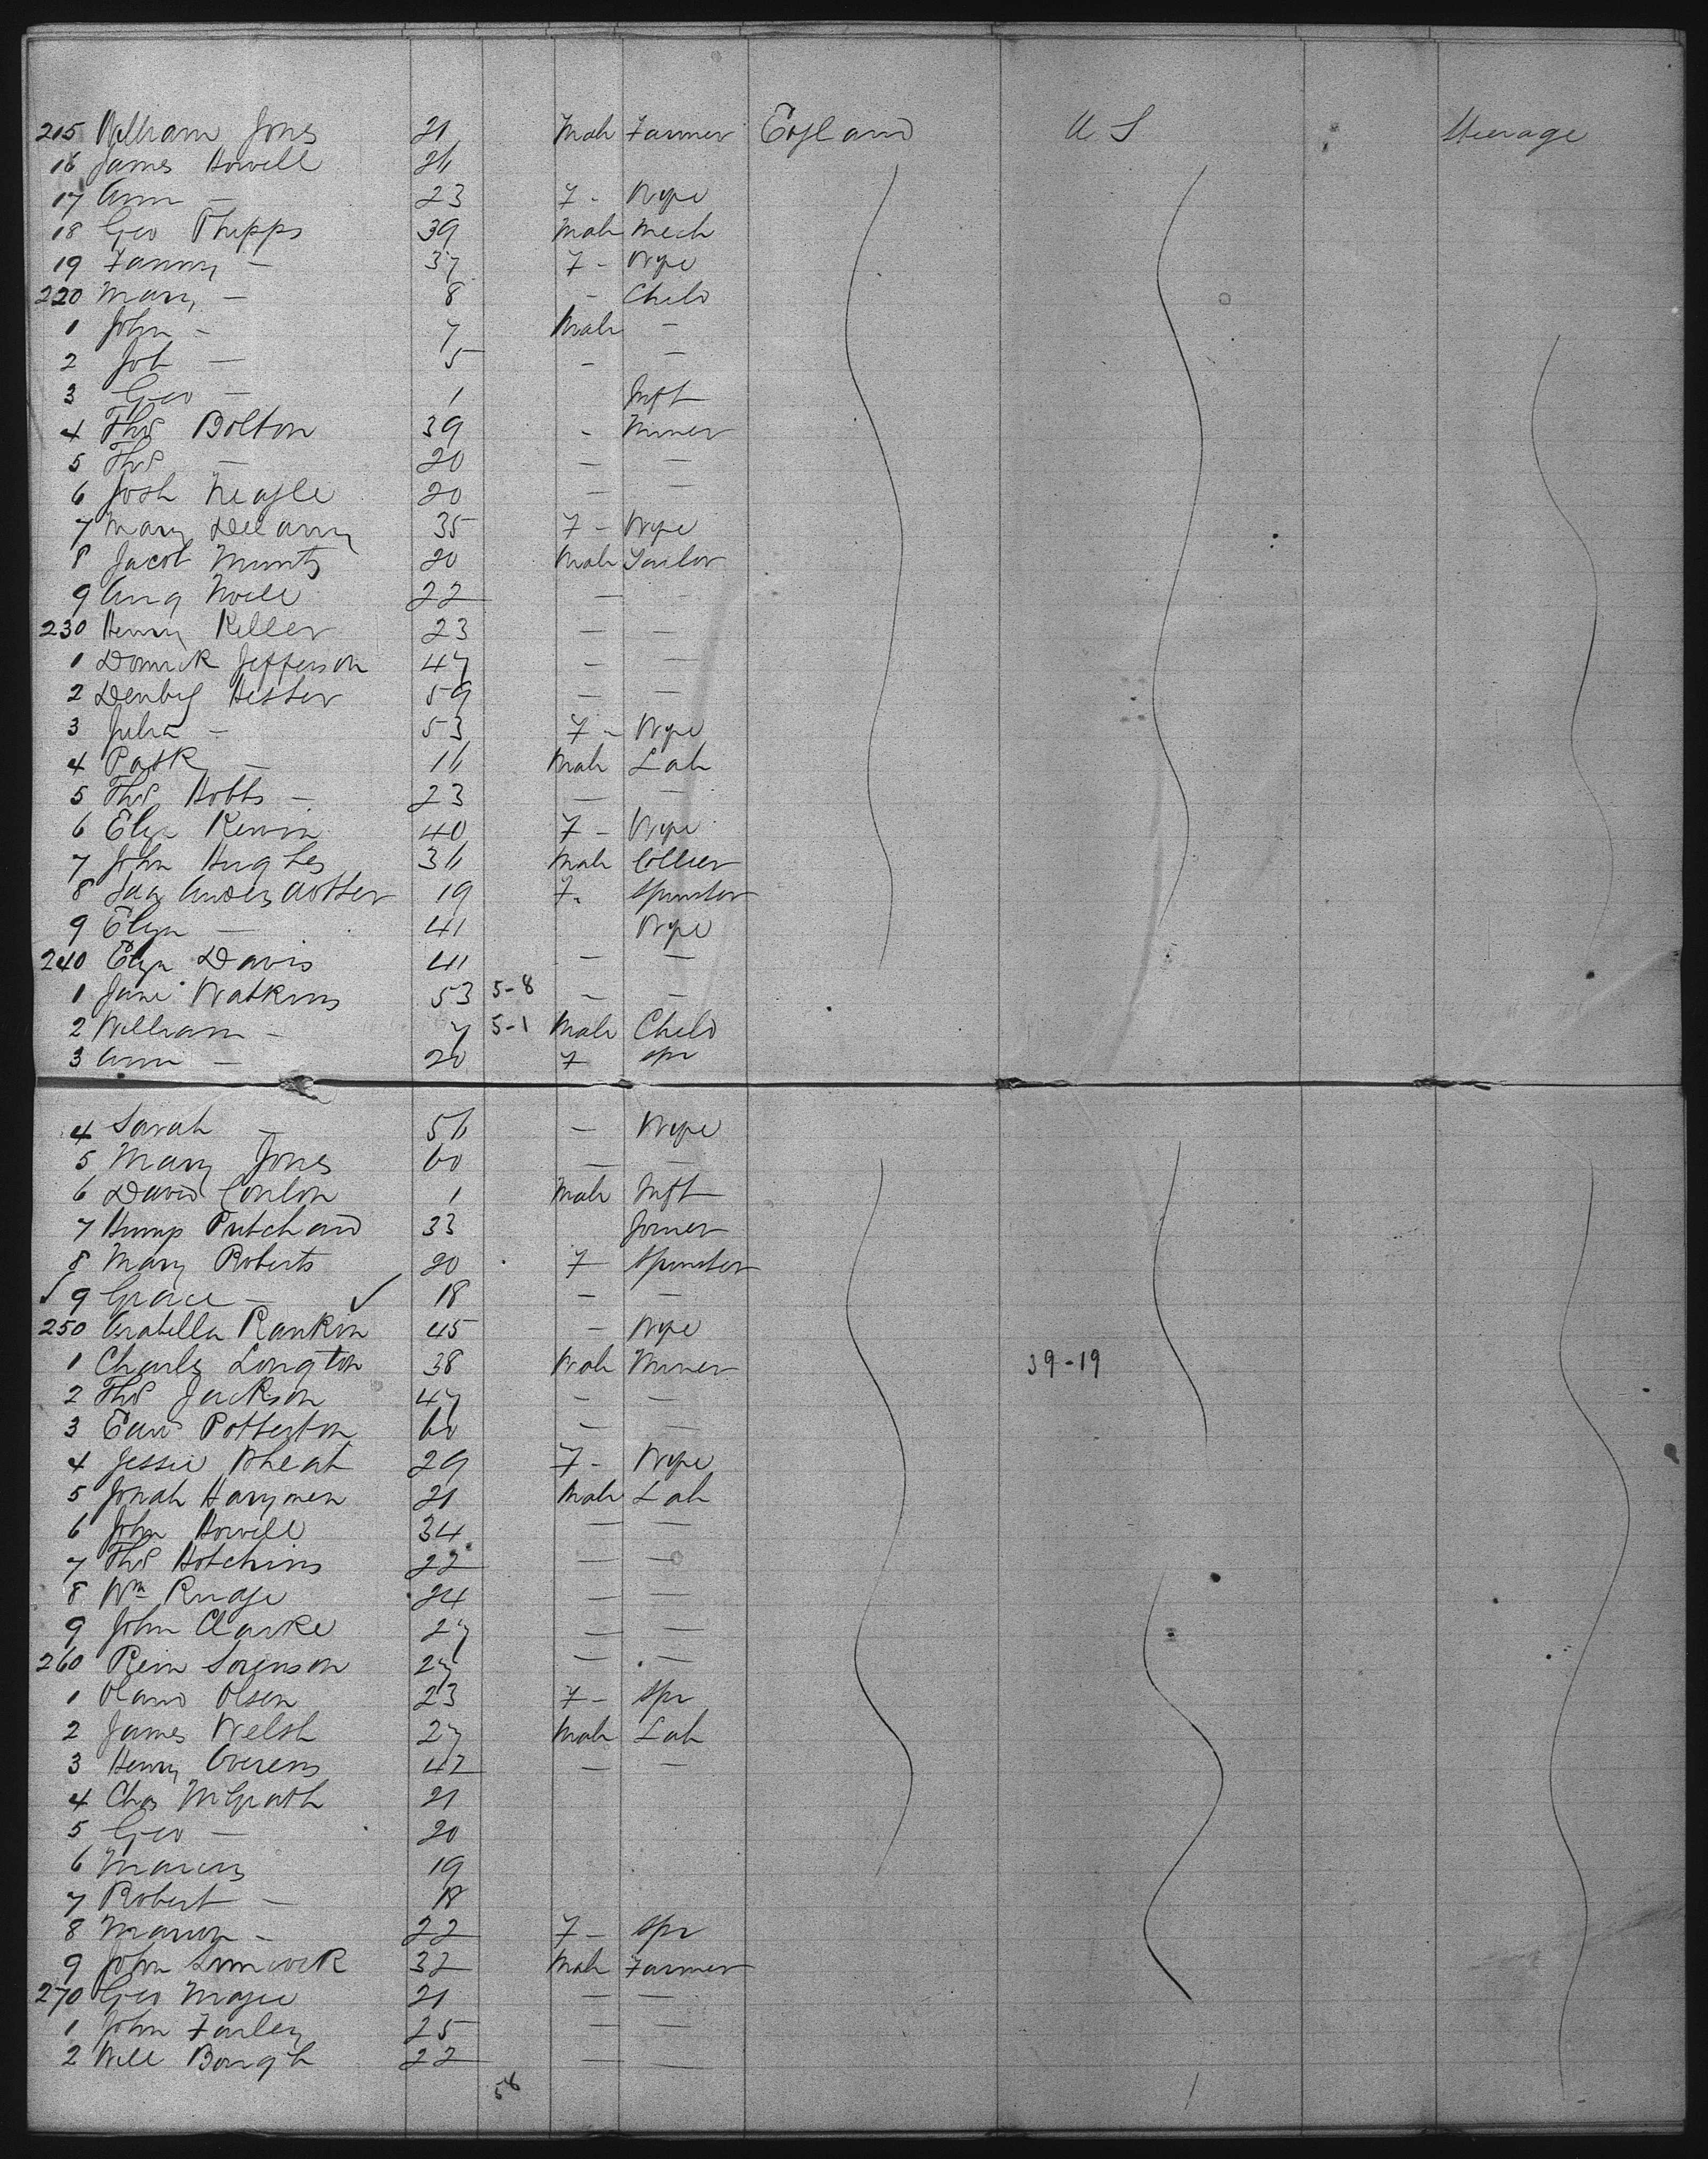 215 William Jones 21 Male Farmer England U S Steerage
16 James Howell 26
17 Ann — 23 F - Wife
18 Geo Phipps 39 Male Mech
19 Fanny — 37 F - Wife
220 Mary — 8 - Child
1 John - 7 Male -
2 Job — 5 - -
3 Geo — 1 Inft
4 Thos Bolton 39 - Miner
5 Thos — 20 — —
6 Josh 20 — —
7 Mary Delany 35 F - Wife
8 Jacob Muntz 20 Male Tailor
9 Aug 22 — -
230 Henry Keller 23 — —
1 Domick Jefferson 47 - —
2 Hester 59 — —
3 Julia - 53 F - Wife
4 Patk — 16 Male Lab
5 Thos Hobbs — 23 — —
6 Eliza Kenvin 40 F - Wife
7 John Hughes 36 Male Collier
8 19 F. Spinster
9 Eliza — 41 Wife
240 Eliza Davis 41 — —
1 Jane Watkins 53 5-8 — —
2 William — 7 5-1 Male Child
3 Ann — 20 F Spr
4 Sarah — 56 — Wife
5 Mary Jones 60 — —
6 David Conlon 1 Male Inft
7 Hump Pritchard 33 Joiner
8 Mary Roberts 20 F Spinster
✓ 9 Grace — ✓ 18 — —
250 Arabella Rankin 45 — Wife
1 Charles Longton 38 Male Miner 39-19
2 Thos Jackson 47 — —
3 Potterton 60 — —
4 Jessie Wheat 29 F - Wife
5 Jonah Harymen 21 Male Lab
6 John Howell 34 — —
7 Thos Hotchins 22 — —
8 Wm Rudge 24 — —
9 John Clarke 27 — —
260 Sorenson 27 — —
1 Olsen 23 F - Spr
2 James Welsh 27 Male Lab
3 Henry Overens 42 — —
4 Chas McGrath 21
5 Geo — 20
6 19
7 Robert — 18
8 Marion - 22 F - Spr
9 John 32 Male Farmer
270 Geo Magee 21 — —
1 John Farley 25 — —
2 Will Bough 22 — —
56